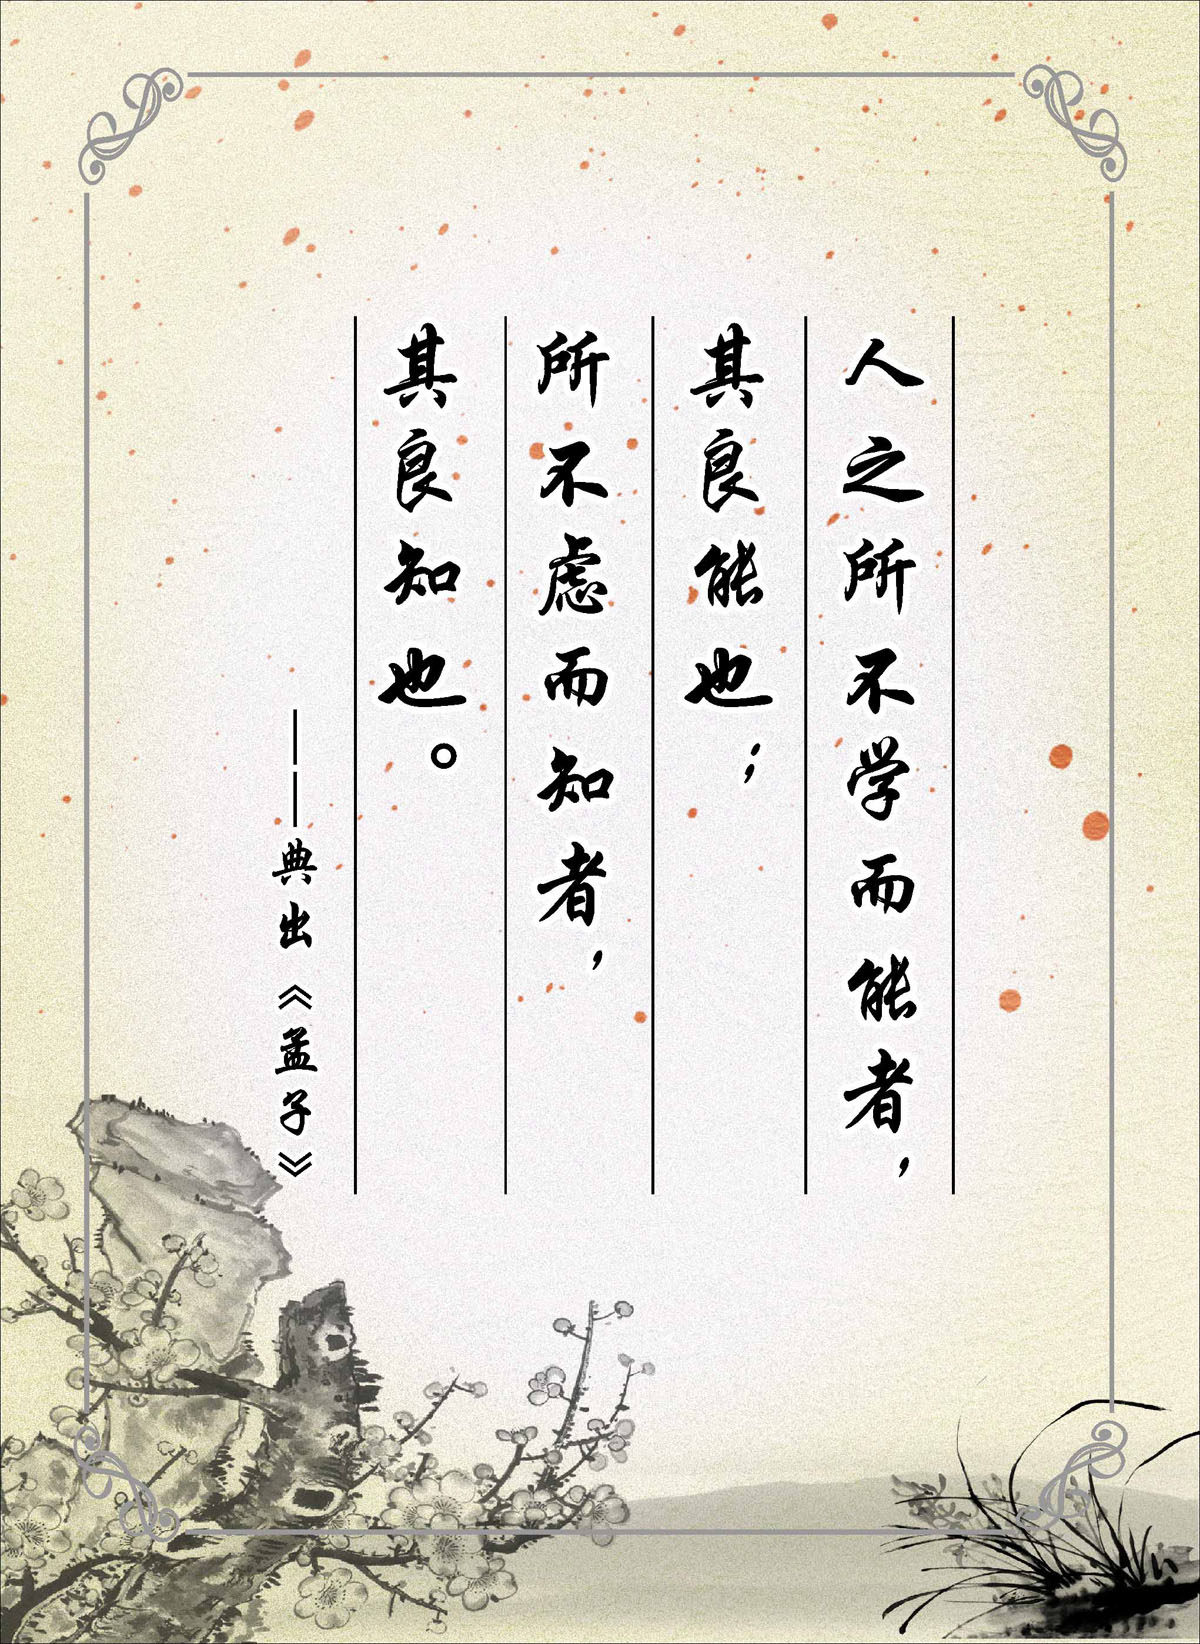 人之所不学而能者，
其良能也；
所不虑而知者，
其良知也。
——典出《孟子》